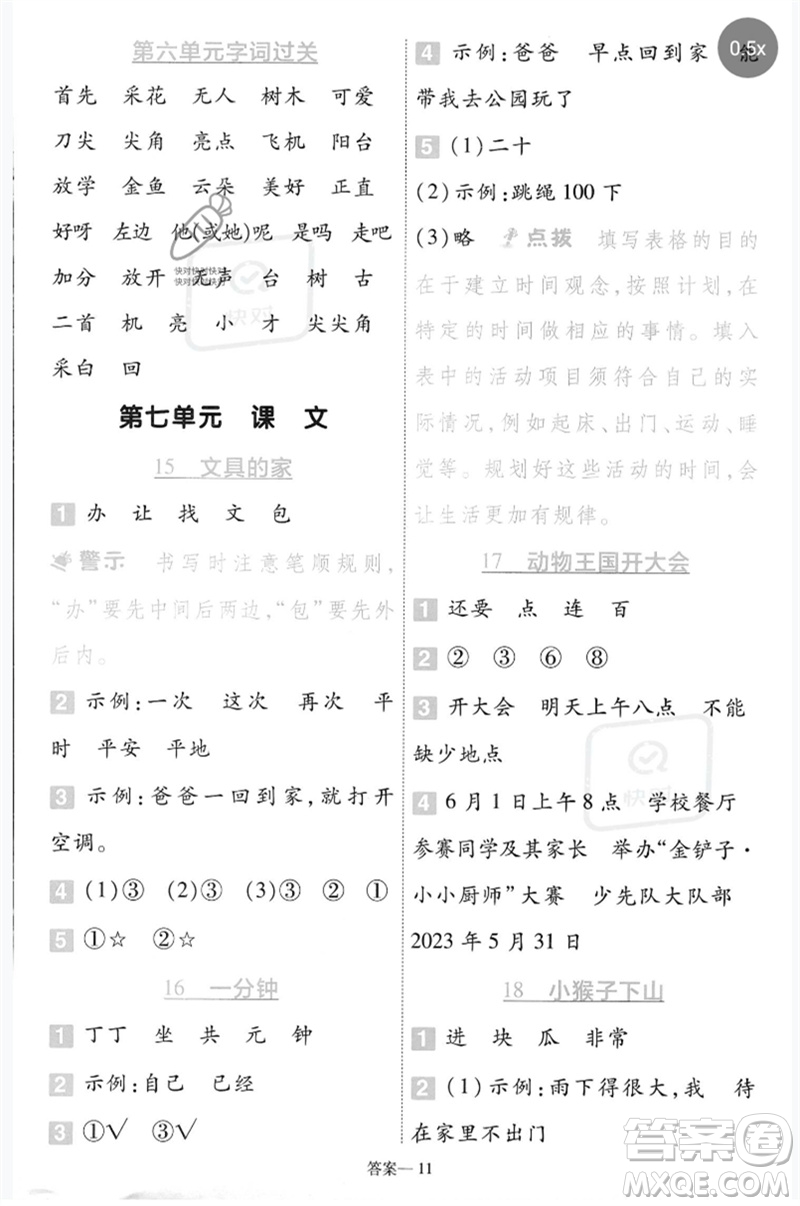 第六单元字词过关
首先 采花 无人 树木 可爱
刀尖 尖角 亮点 飞机 阳台
放学 金鱼 云朵 美好 正直
好呀 左边 他(或她)呢 是吗 走吧
加分 放开 无声 台 树 古
二首 机 亮 小 才 尖尖角
采白 回
第七单元 课 文
15 文具的家
1 办 让 找 文 包
警示 书写时注意笔顺规则,
“办”要先中间后两边,“包”要先外
后内。
2 示例:一次 这次 再次 平
时 平安 平地
3 示例:爸爸一回到家,就打开
空调。
4 (1)③ (2)③ (3)③ ② ①
5 ①☆ ②☆
16 一分钟
1 丁丁 坐 共 元 钟
2 示例:自己 已经
3 ①√ ③√
4 示例:爸爸 早点回到家 能
带我去公园玩了
5 (1)二十
(2)示例:跳绳100下
(3)略 点拨 填写表格的目的
在于建立时间观念,按照计划,在
特定的时间做相应的事情。填入
表中的活动项目须符合自己的实
际情况,例如起床、出门、运动、睡
觉等。规划好这些活动的时间,会
让生活更加有规律。
17 动物王国开大会
1 还要 点 连 百
2 ② ③ ⑥ ⑧
3 开大会 明天上午八点 不能
缺少地点
4 6月1日上午8点 学校餐厅
参赛同学及其家长 举办“金铲子·
小小厨师”大赛 少先队大队部
2023年5月31日
18 小猴子下山
1 进 块 瓜 非常
2 (1)示例:雨下得很大,我 待
在家里不出门
答案—11
0.5x
快对快对快对
快对快对快对
快对
快对
答案圈
MXQE.COM